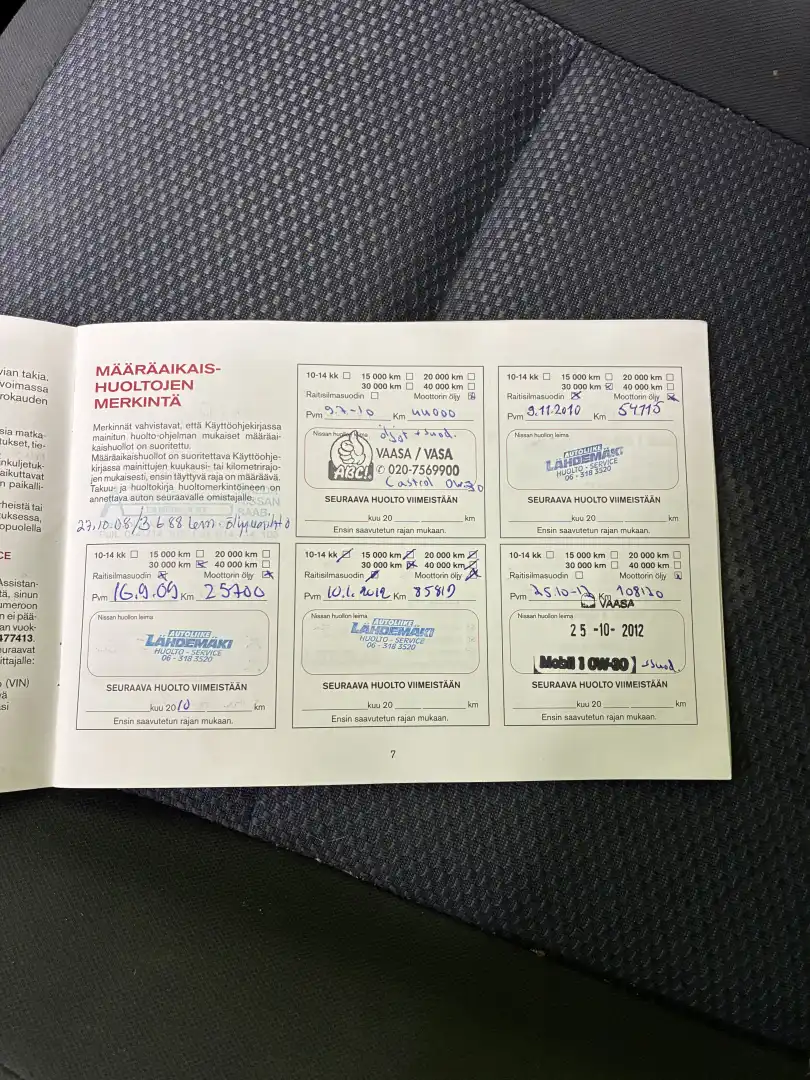 vian takia.
voimassa
rokauden
sia matka-
tukset, tie-
nkuljetuk-
aikuttavat
n paikalli-
rheistä tai
tuksessa,
opuolella
CE
Assistan-
tä, sinun
umeroon
n ei pää-
an vuok-
477413.
euraavat
ittajalle:
(VIN)
vä
si
MÄÄRÄAIKAIS-
HUOLTOJEN
MERKINTÄ
Merkinnät vahvistavat, että Käyttöohjekirjassa
mainitun huolto-ohjelman mukaiset määräai-
kaishuollot on suoritettu.
Määräaikaishuollot on suoritettava Käyttöohje-
kirjassa mainittujen kuukausi- tai kilometrirajo-
jen mukaisesti, ensin täyttyvä raja on määräävä.
Takuu- ja huoltokirja huoltomerkintöineen on
annettava auton seuraavalle omistajalle.
27.10.08/3688 km. öljynvaihto
10-14 kk 15 000 km 20 000 km
30 000 km 40 000 km
Raitisilmasuodin Moottorin öljy
Pvm 9.7-10 Km 44000
Nissan huollon leima
öljyt + suod.
ABC! VAASA / VASA
020-7569900
Castrol 0w30
SEURAAVA HUOLTO VIIMEISTÄÄN
kuu 20 km
Ensin saavutetun rajan mukaan.
10-14 kk 15 000 km 20 000 km
30 000 km 40 000 km
Raitisilmasuodin Moottorin öljy
Pvm 9.11.2010 Km 54715
Nissan huollon leima
AUTOLIIKE
LÄHDEMÄKI
HUOLTO - SERVICE
06 - 318 3520
SEURAAVA HUOLTO VIIMEISTÄÄN
kuu 20 km
Ensin saavutetun rajan mukaan.
10-14 kk 15 000 km 20 000 km
30 000 km 40 000 km
Raitisilmasuodin Moottorin öljy
Pvm 16.9.09 Km 25700
Nissan huollon leima
AUTOLIIKE
LÄHDEMÄKI
HUOLTO - SERVICE
06 - 318 3520
SEURAAVA HUOLTO VIIMEISTÄÄN
kuu 2010 km
Ensin saavutetun rajan mukaan.
10-14 kk 15 000 km 20 000 km
30 000 km 40 000 km
Raitisilmasuodin Moottorin öljy
Pvm 10.1.2012 Km 85817
Nissan huollon leima
AUTOLIIKE
LÄHDEMÄKI
HUOLTO - SERVICE
06 - 318 3520
SEURAAVA HUOLTO VIIMEISTÄÄN
kuu 20 km
Ensin saavutetun rajan mukaan.
10-14 kk 15 000 km 20 000 km
30 000 km 40 000 km
Raitisilmasuodin Moottorin öljy
Pvm 25.10-12 Km 108120
VAASA
Nissan huollon leima
25 -10- 2012
Mobil 1 0W-30 +suod.
SEURAAVA HUOLTO VIIMEISTÄÄN
kuu 20 km
Ensin saavutetun rajan mukaan.
7